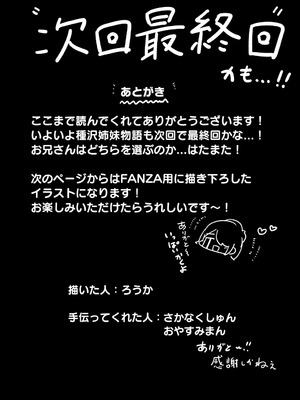 次回最終回
かも…!!
あとがき
ここまで読んでくれてありがとうございます！
いよいよ種沢姉妹物語も次回で最終回かな…！
お兄さんはどちらを選ぶのか…はたまた！
次のページからはFANZA用に描き下ろした
イラストになります！
お楽しみいただけたらうれしいです〜！
ありがと〜
いっぱいがくよ
描いた人：ろうか
手伝ってくれた人：さかなくしゅん
おやすみまん
ありがとー!!
感謝しかねぇ